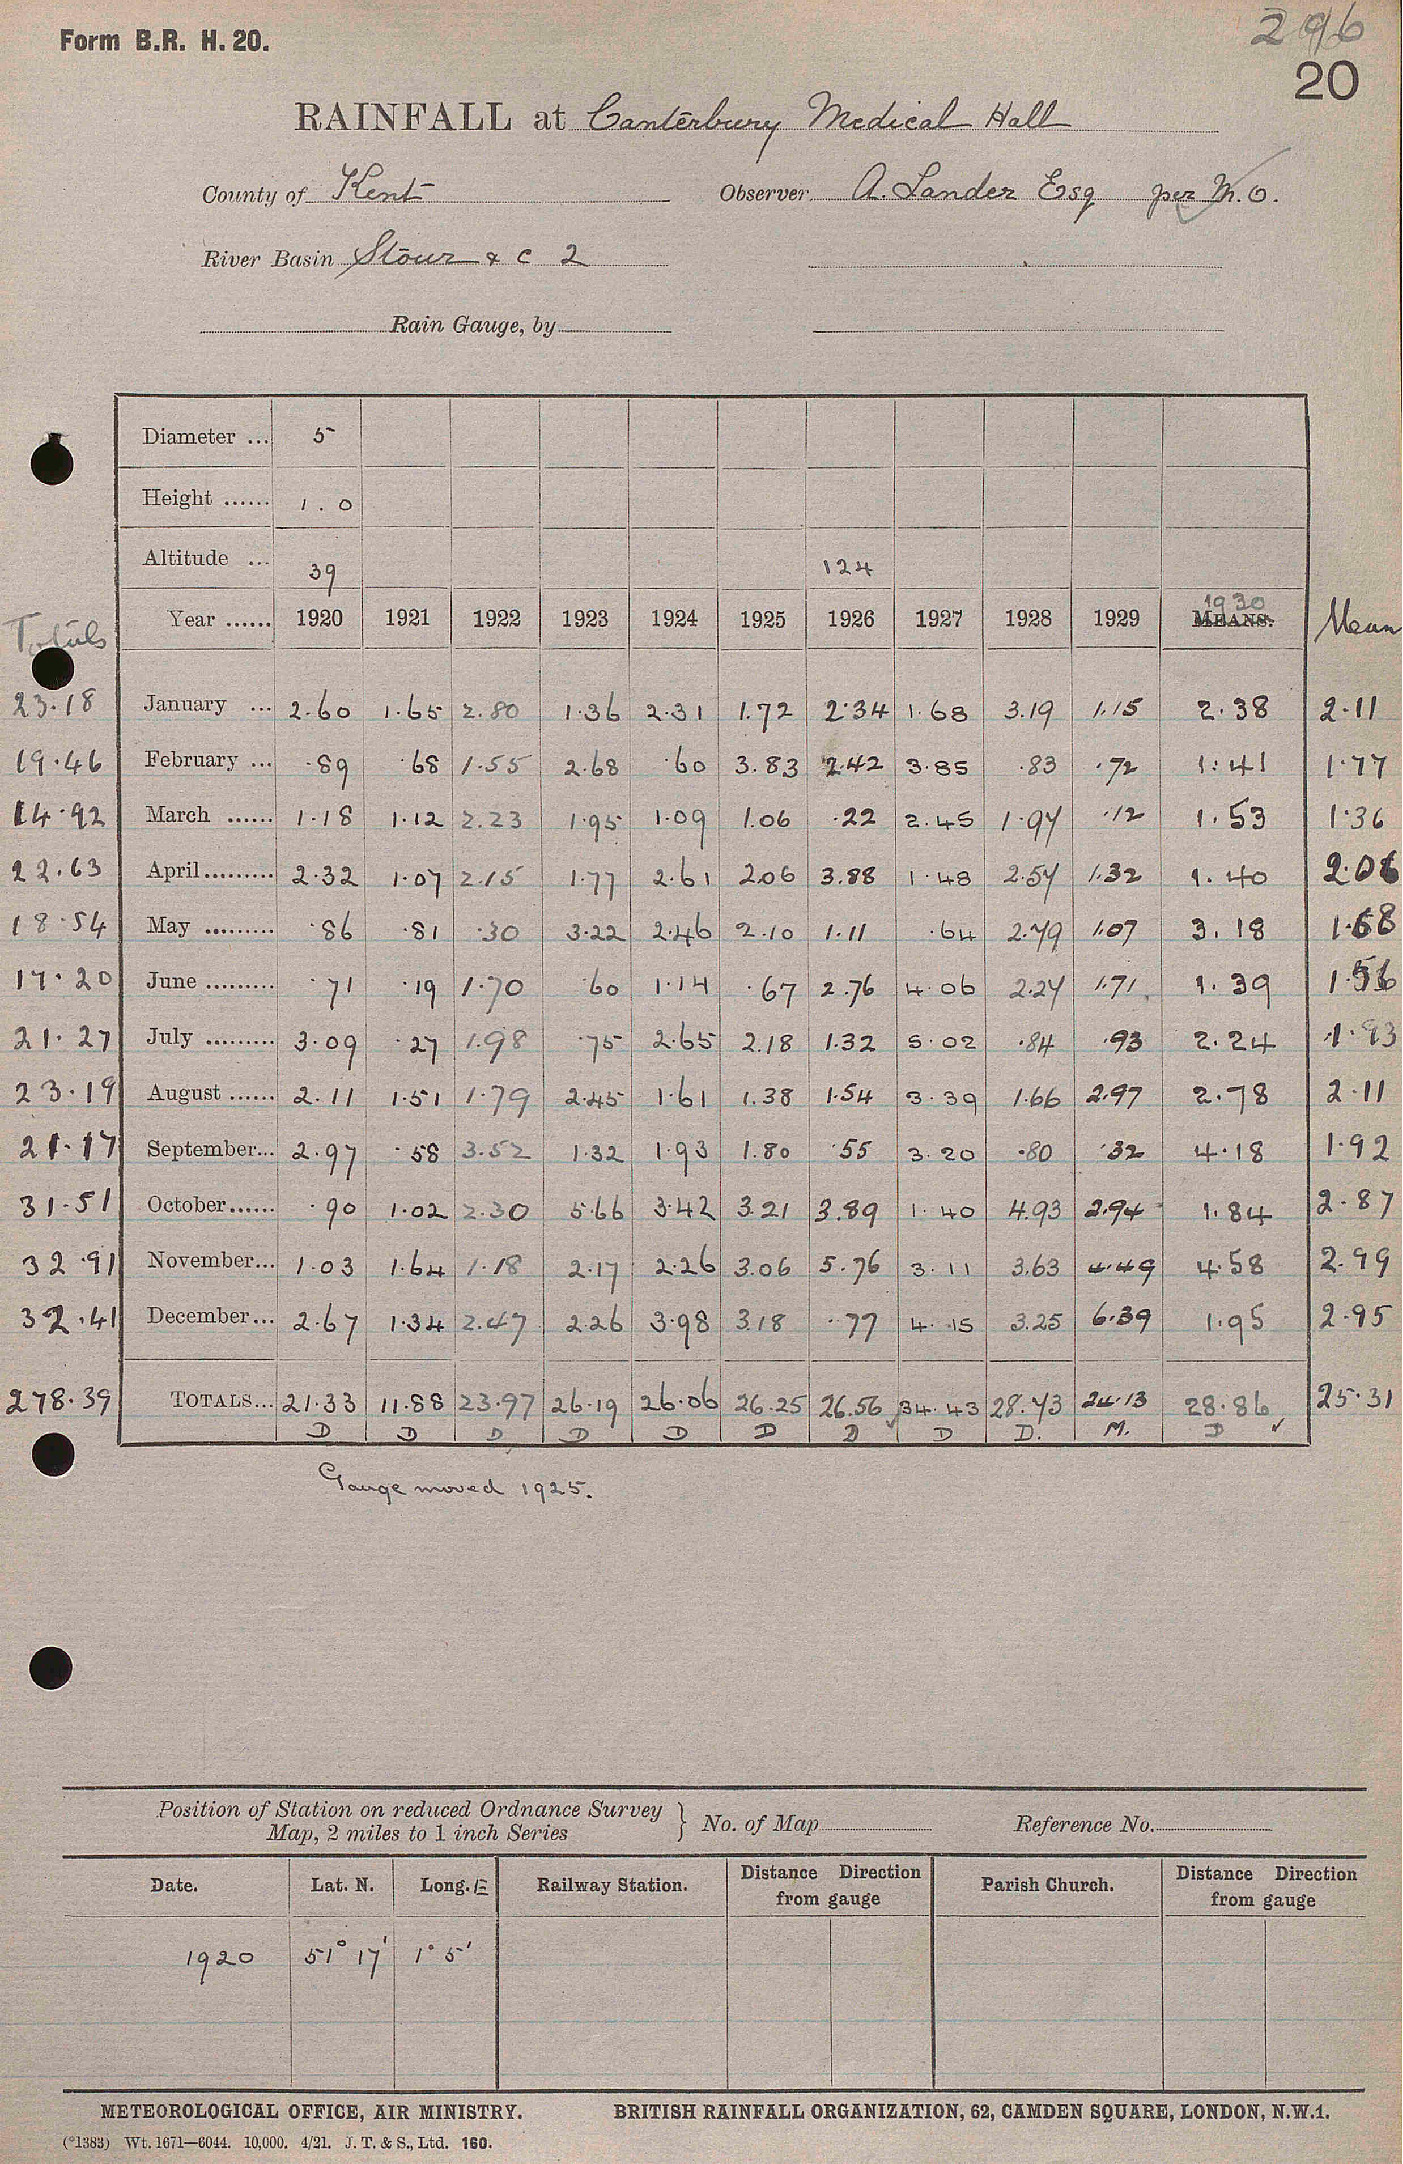 Form B.R. H. 20.
296
20
RAINFALL at Canterbury Medical Hall
County of Kent Observer A. Lander Esq per M.O.
River Basin Stour & C 2
Rain Gauge, by
Diameter ... 5
Height ...... 1.0
Altitude ... 39 124
Totals Year ...... 1920 1921 1922 1923 1924 1925 1926 1927 1928 1929 1930 MEANS. Mean
23.18 January ... 2.60 1.65 2.80 1.36 2.31 1.72 2.34 1.68 3.19 1.15 2.38 2.11
19.46 February ... .89 .68 1.55 2.68 .60 3.83 2.42 3.85 .83 .72 1.41 1.77
14.92 March ...... 1.18 1.12 2.23 1.95 1.09 1.06 .22 2.45 1.97 .12 1.53 1.36
22.63 April......... 2.32 1.07 2.15 1.77 2.61 2.06 3.88 1.48 2.57 1.32 1.40 2.06
18.54 May ......... .86 .81 .30 3.22 2.46 2.10 1.11 .64 2.79 1.07 3.18 1.68
17.20 June ......... .71 .19 1.70 .60 1.14 .67 2.76 4.06 2.27 1.71 1.39 1.56
21.27 July ......... 3.09 .27 1.98 .75 2.65 2.18 1.32 5.02 .84 .93 2.24 1.93
23.19 August ...... 2.11 1.51 1.79 2.45 1.61 1.38 1.54 3.39 1.66 2.97 2.78 2.11
21.17 September... 2.97 .58 3.52 1.32 1.93 1.80 .55 3.20 .80 .32 4.18 1.92
31.51 October...... .90 1.02 2.30 5.66 3.42 3.21 3.89 1.40 4.93 2.94 1.84 2.87
32.91 November... 1.03 1.64 1.18 2.17 2.26 3.06 5.76 3.11 3.63 4.49 4.58 2.99
32.41 December... 2.67 1.34 2.47 2.26 3.98 3.18 .77 4.15 3.25 6.39 1.95 2.95
278.39 TOTALS... 21.33 11.88 23.97 26.19 26.06 26.25 26.56 34.43 28.73 24.13 28.86 25.31
D D D D D D D D D. M. D
Gauge moved 1925.
Position of Station on reduced Ordnance Survey
Map, 2 miles to 1 inch Series } No. of Map Reference No.
Date. Lat. N. Long. E Railway Station. Distance Direction from gauge Parish Church. Distance Direction from gauge
1920 51° 17' 1° 5'
METEOROLOGICAL OFFICE, AIR MINISTRY. BRITISH RAINFALL ORGANIZATION, 62, CAMDEN SQUARE, LONDON, N.W.1.
(*1383) Wt. 1671—6044. 10,000. 4/21. J. T. & S., Ltd. 160.